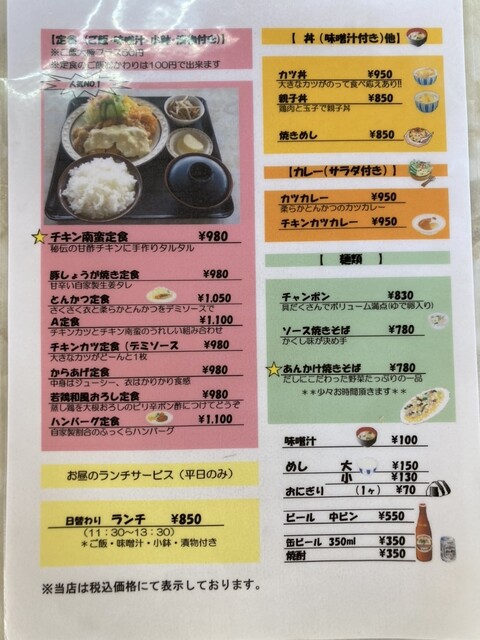 【定食（ご飯・味噌汁・小鉢・漬物付き）】
※ご飯大盛プラス50円
※定食のご飯おかわりは100円で出来ます
人気NO.1
チキン南蛮定食 ¥980
秘伝の甘酢チキンに手作りタルタル
豚しょうが焼き定食 ¥980
甘辛い自家製生姜タレ
とんかつ定食 ¥1,050
さくさく衣と柔らかとんかつをデミソースで
A定食 ¥1,100
チキンカツとチキン南蛮のうれしい組み合わせ
チキンカツ定食（デミソース ¥980
大きなカツがどーんと1枚
からあげ定食 ¥980
中身はジューシー、衣はかりかり食感
若鶏和風おろし定食 ¥980
蒸し鶏を大根おろしのピリ辛ポン酢につけてどうぞ
ハンバーグ定食 ¥1,100
自家製割合のふっくらハンバーグ
お昼のランチサービス（平日のみ）
日替わり ランチ ¥850
（11：30～13：30）
＊ご飯・味噌汁・小鉢・漬物付き
※当店は税込価格にて表示しております。
【 丼（味噌汁付き）他】
カツ丼 ¥950
大きなカツがのって食べ応えあり!!
親子丼 ¥850
鶏肉と玉子で親子丼
焼きめし ¥850
【カレー（サラダ付き）】
カツカレー ¥950
柔らかとんかつのカツカレー
チキンカツカレー ¥950
【 麺類 】
チャンポン ¥830
具だくさんでボリューム満点（ゆで卵入り）
ソース焼きそば ¥780
かくし味が決め手
あんかけ焼きそば ¥780
だしにこだわった野菜たっぷりの一品
＊＊少々お時間頂きます＊＊
味噌汁 ¥100
めし 大 ¥150
小 ¥130
おにぎり （1ヶ） ¥70
ビール 中ビン ¥550
缶ビール 350ml ¥350
焼酎 ¥350